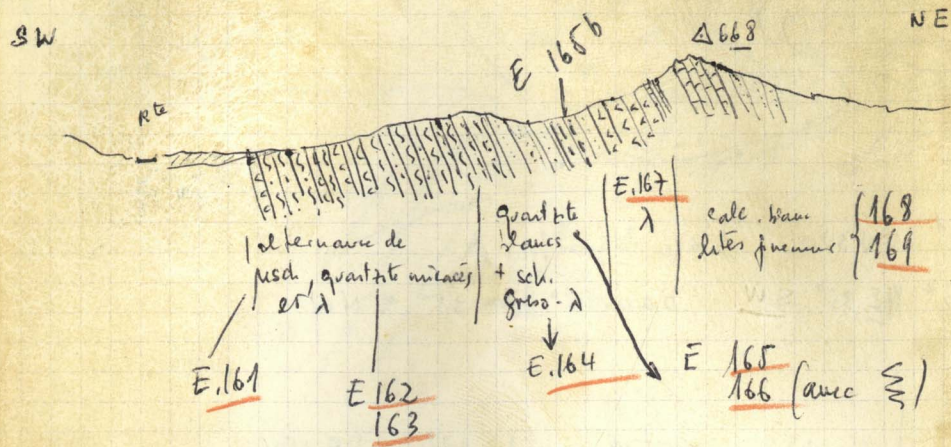 SW
NE
△668
E 165b
rte
alternance de
μsch, quartzite micacés
et λ
quartzite
blancs
+ sch.
greso-λ
E.167
λ
calc. blanc
lités
168
169
E.161
E 162
163
E.164
E 165
166 (avec ξ)